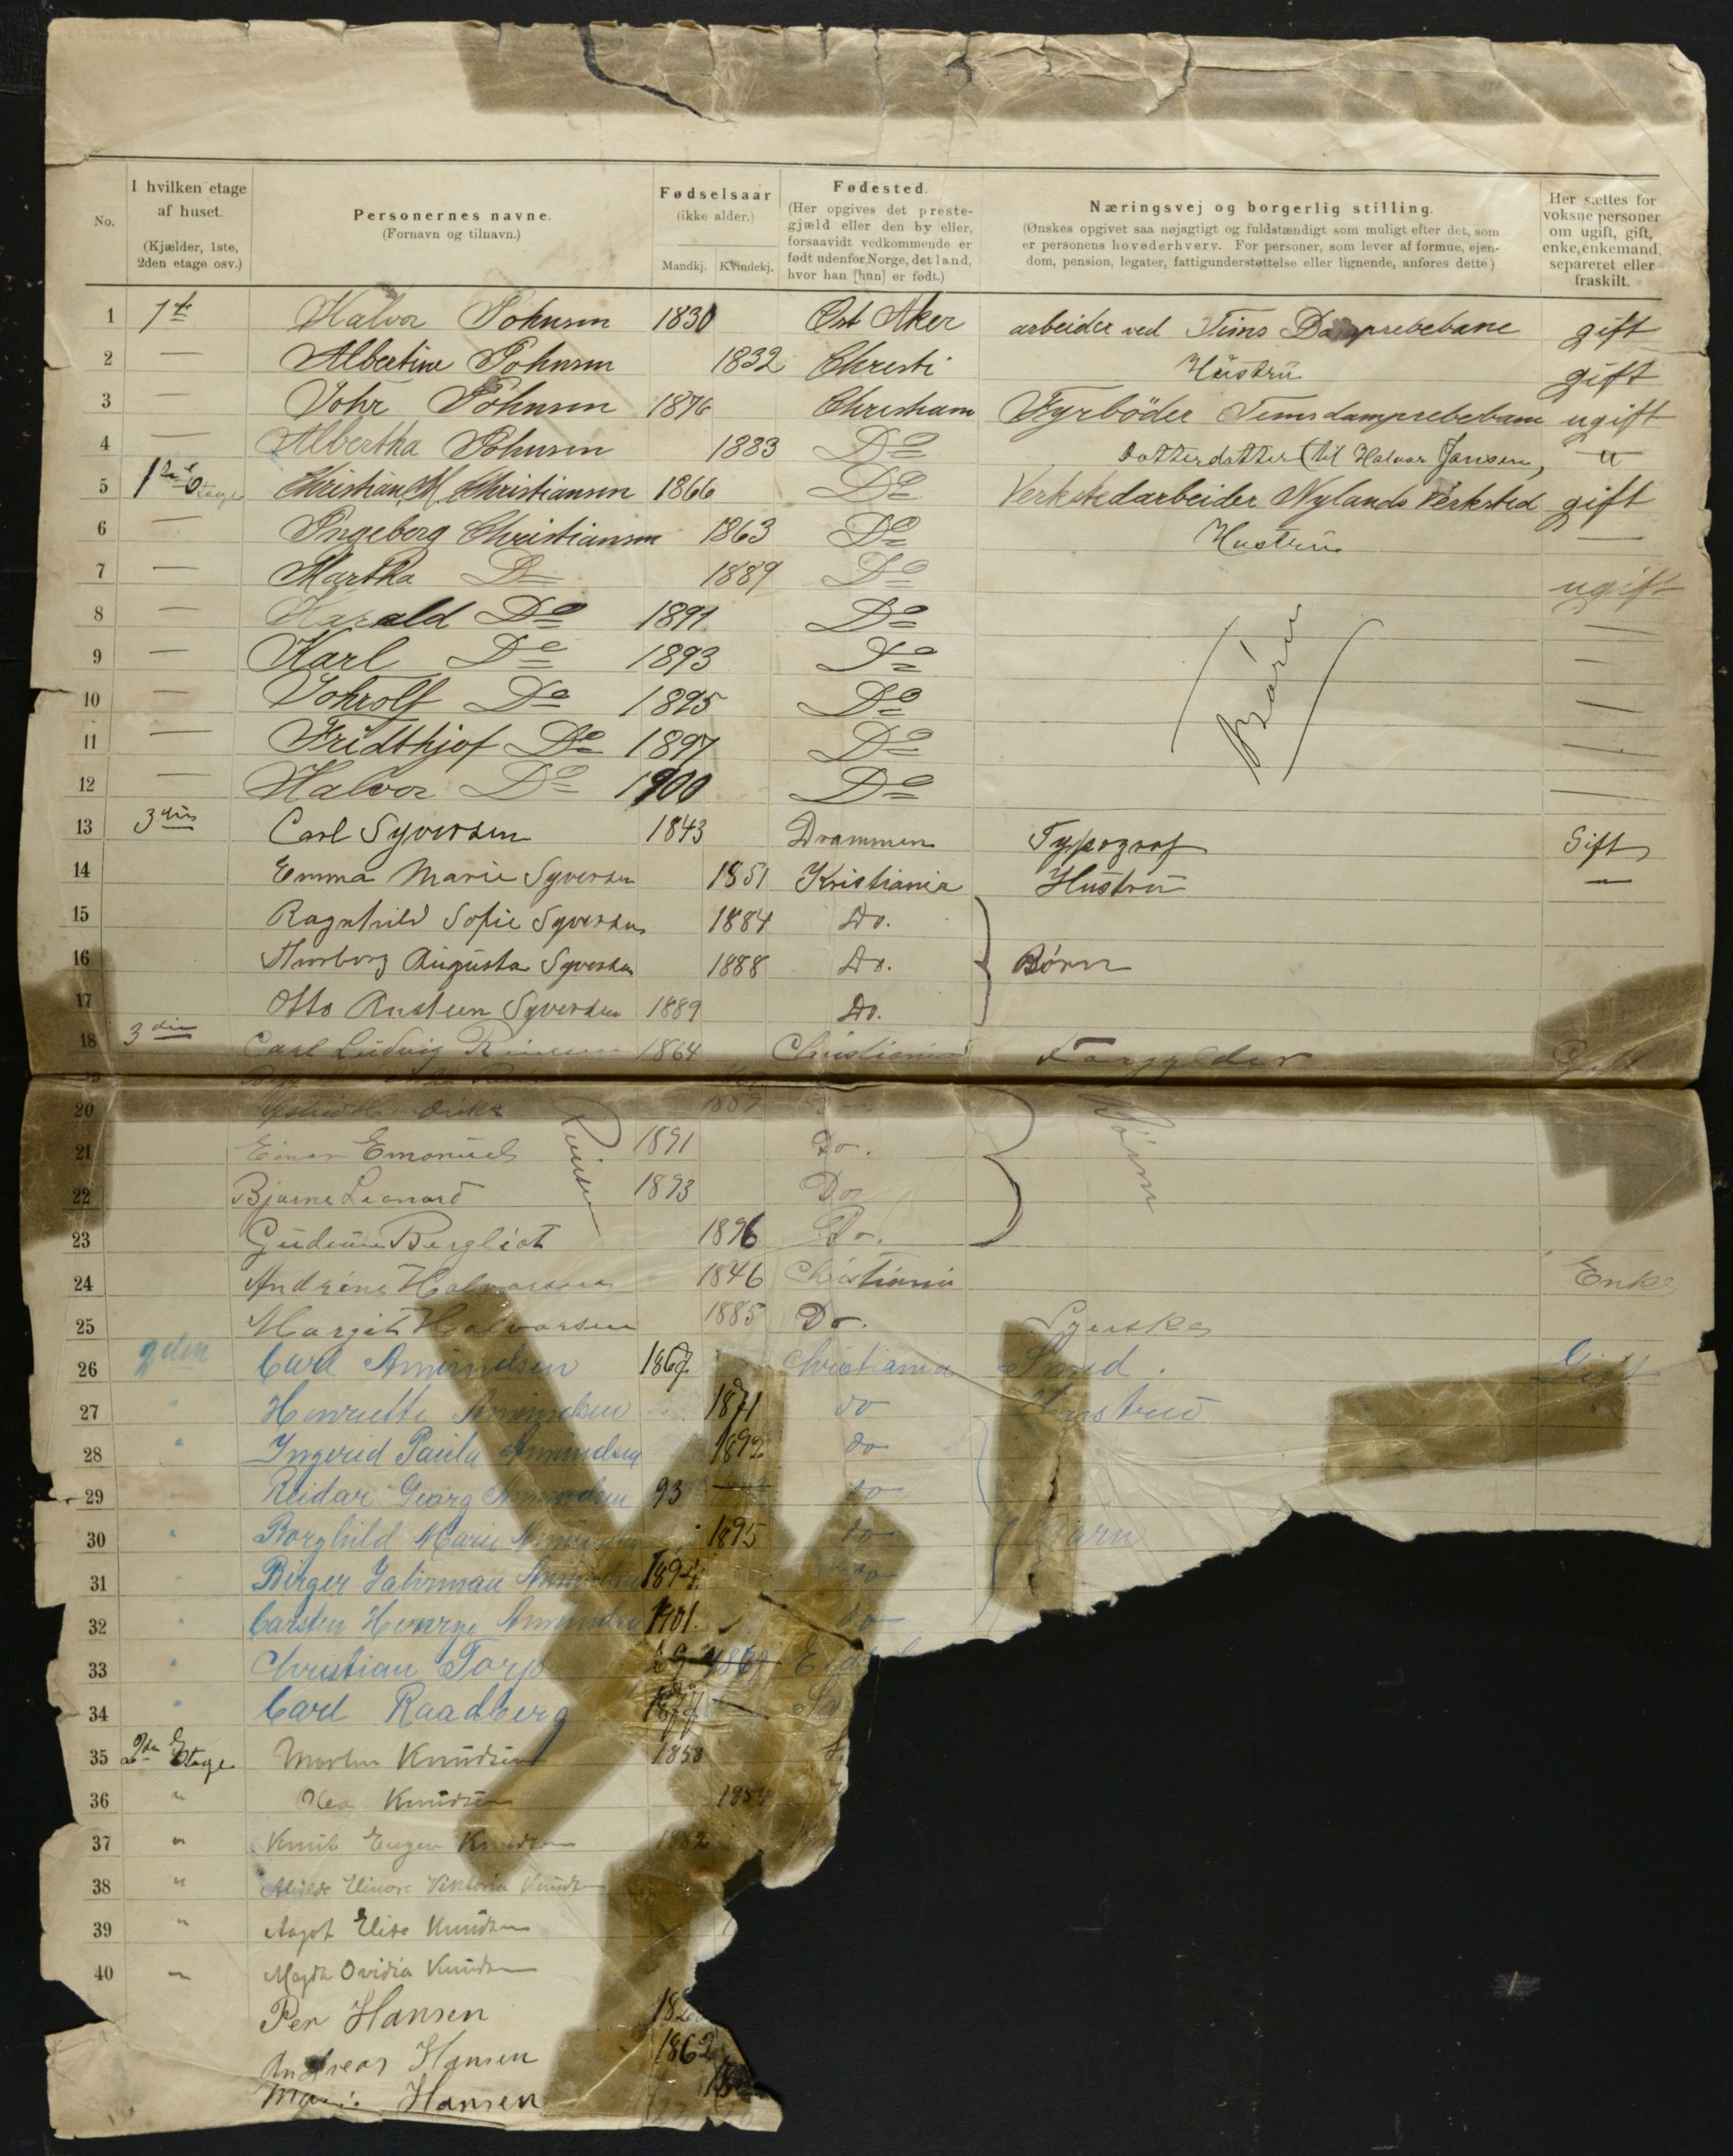 No.
I hvilken etage af huset. (Kjælder, 1ste, 2den etage osv.)
Personernes navne. (Fornavn og tilnavn.)
Fødselsaar (ikke alder.) Mandkj. Kvindekj.
Fødested. (Her opgives det prestegjæld eller den by eller, forsaavidt vedkommende er født udenfor Norge, det land, hvor han [hun] er født.)
Næringsvej og borgerlig stilling. (Ønskes opgivet saa nøjagtigt og fuldstændigt som muligt efter det, som er personens hovederhverv. For personer, som lever af formue, ejendom, pension, legater, fattigunderstøttelse eller lignende, anføres dette)
Her sættes for voksne personer om ugift, gift, enke, enkemand, separeret eller fraskilt.
1 1te Halvor Johnsen 1830 Øst Aker arbeider ved gift
2 — Albertine Johnsen 1832 Christi Hustru gift
3 — Johnsen 1876 Christiania Fyrbøder ugift
4 — Albertha Johnsen 1883 Do Datterdatter (til Halvor Jansen) "
5 1ste Etage Christian M. Christiansen 1866 Do Verkstedarbeider Nylands Verksted gift
6 — Ingeborg Christiansen 1863 Do Hustru —
7 — Martha Do 1889 Do ugift
8 — Harald Do 1891 Do —
9 — Karl Do 1893 Do Børn —
10 — Do 1895 Do —
11 — Fridthjof Do 1897 Do —
12 — Halvor Do 1900 Do —
13 3die Carl Syversen 1843 Drammen Typograf Gift
14 Emma Marie Syversen 1851 Kristiania Hustru —
15 Ragnhild Sofie Syversen 1884 Do.
16 Augusta Syversen 1888 Do. Børn
17 Otto Syversen 1889 Do.
18 3die Carl Ludvig 1864 Christiania Forgylder Gift
20 1889
21 Einar Emanuel 1891 Do. Børn
22 Bjarne Leonard 1893 Do
23 Gudrun Bergliot 1896 Do.
24 Andrine Halvorsen 1846 Christiania Enke
25 Margit Halvorsen 1885 Do. Syerske
26 2den Carl Amundsen 1867 Christiania Smed. Gift
27 " Henriette Amundsen 1871 do Hustru
28 " Ingerid Paula Amundsen 1892 do
29 " Reidar Georg Amundsen 93 — do
30 " Borghild Marie Amundsen 1895 do Barn
31 " Birger Amundsen 1894 do
32 " Carsten Amundsen 1901. do
33 " Christian Torp 69 1869
34 " Carl Raadberg 1877 —
35 2den Etage Knudsen 1850
36 " Olea Knudsen
37 " Knut Eugen Knudsen 1882
38 " Viktoria Knudsen
39 " Aagot Elise Knudsen
40 " Magda Ovidia Knudsen
Per Hansen
Andreas Hansen 1862
Hansen